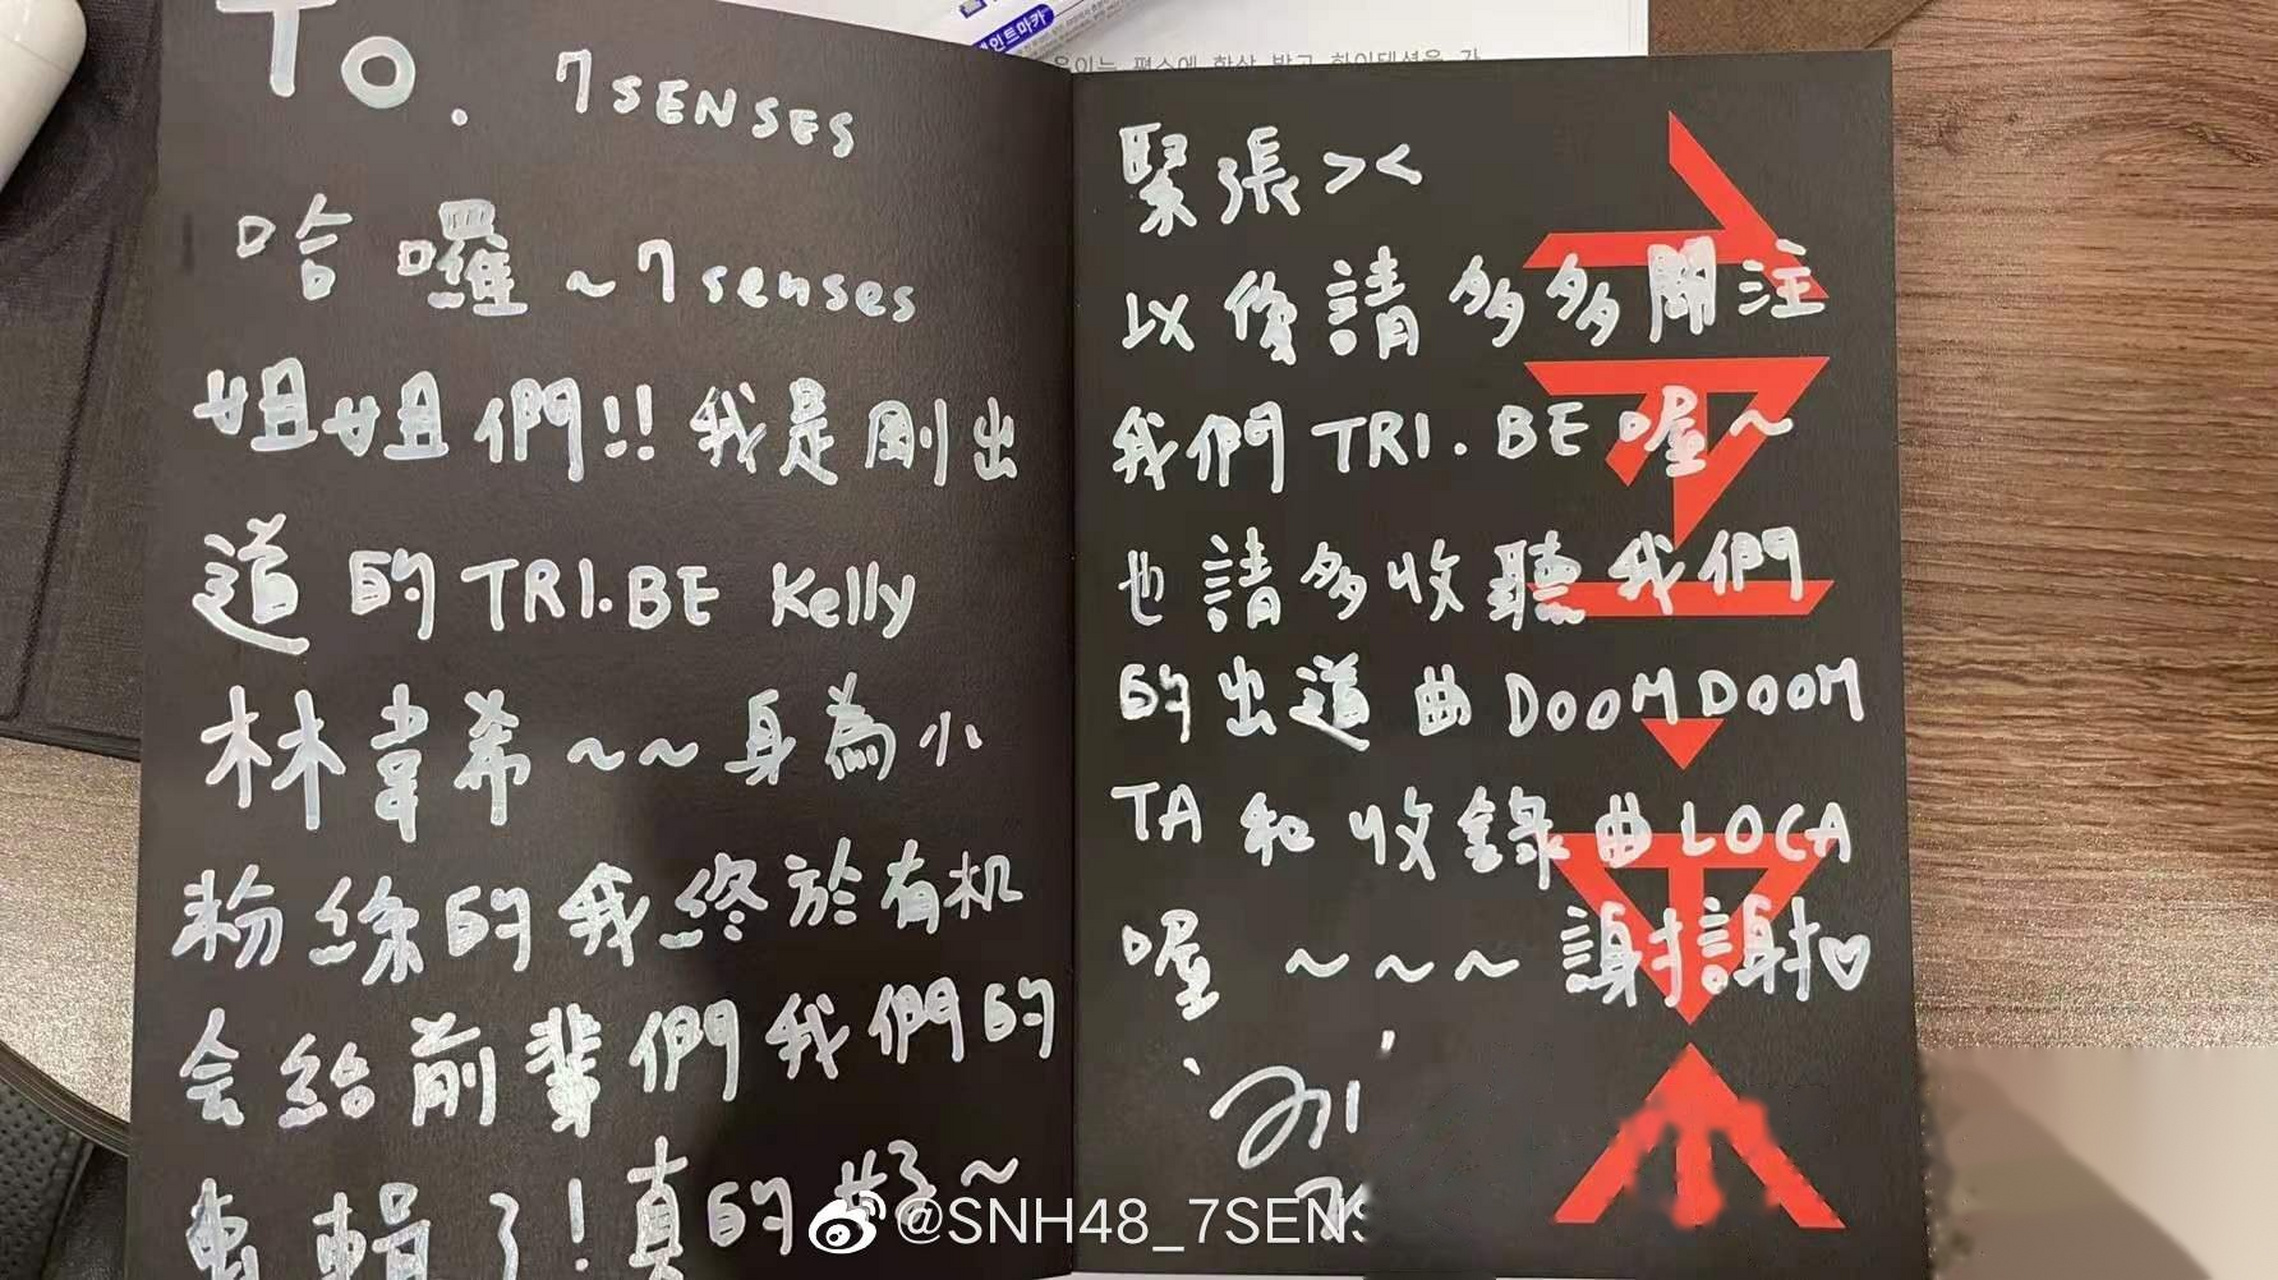 To. 7SENSES
哈囉~7senses
姐姐們!!我是剛出
道的TRI.BE Kelly
林韋希~~身為小
粉絲的我終於有机
会給前輩們我們的
專輯了!真的好~
緊張><
以後請多多關注
我們TRI.BE喔~
也請多收聽我們
的出道曲DOOMDOOM
TA和收錄曲LOCA
喔~~~謝謝♡
@SNH48_7SENS
페인트마카